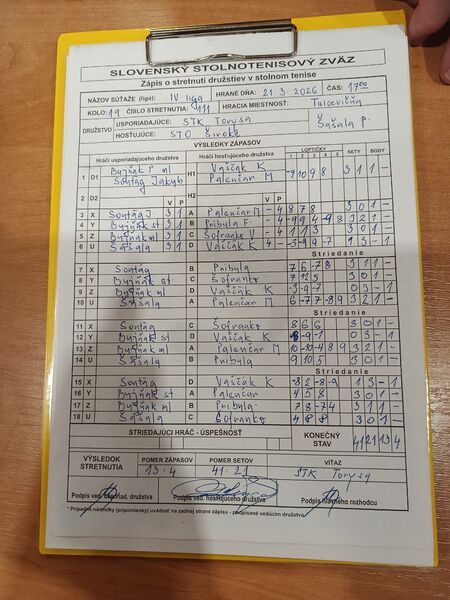 SLOVENSKÝ STOLNOTENISOVÝ ZVÄZ
Zápis o stretnutí družstiev v stolnom tenise
NÁZOV SÚŤAŽE (liga): IV liga HRANÉ DŇA: 21 3 2026 ČAS: 17 00
KOLO: 19 ČÍSLO STRETNUTIA: 111 HRACIA MIESTNOSŤ:
DRUŽSTVO
USPORIADAJÚCE: STK Torysa Šašala P.
HOSŤUJÚCE: STO Široké
VÝSLEDKY ZÁPASOV
Hráči usporiadajúceho družstva Hráči hosťujúceho družstva LOPTIČKY SETY BODY
1 2 3 4 5
1 D1 Byjňák P ml H1 Vaščák K -9 10 9 8 3 1 1 -
Sontág Jakub Palenčár M
2 D2 H2
V P V P
3 X Sontág J 3 1 A Palenčár M -4 8 7 8 3 1 1 -
4 Y Byjňák st 3 1 B Pribyla F
5 Z Byjňák ml 3 1 C Šofranko V 4 1 1 3 3 0 1 -
6 U Šašala 3 1 D Vaščák K
Striedanie
7 X Sontág B Pribyla 7 6 -7 8 3 1 1 -
8 Y Byjňák st C Šofranko 7 12 5 3 0 1 -
9 Z Byjňák ml D Vaščák K -3 -9 -7 0 3 - 1
10 U Šašala A Palenčár M 6 -7 7 -8 9 3 2 1 -
Striedanie
11 X Sontág C Šofranko 8 6 6 3 0 1 -
12 Y Byjňák st D Vaščák K -8 -9 -1 0 3 - 1
13 Z Byjňák ml A Palenčár M 10 -10 -4 8 9 3 2 1 -
14 U Šašala B Pribyla 9 10 5 3 0 1 -
Striedanie
15 X Sontág D Vaščák K -8 2 -8 -9 1 3 - 1
16 Y Byjňák st A Palenčár 4 5 8 3 0 1 -
17 Z Byjňák ml B Pribyla 7 8 -7 4 3 1 1 -
18 U Šašala C Šofranko 4 8 8 3 0 1 -
STRIEDAJÚCI HRÁČ - ÚSPEŠNOSŤ KONEČNÝ STAV 41 21 13 4
VÝSLEDOK STRETNUTIA
POMER ZÁPASOV POMER SETOV VÍŤAZ
13:4 41:21 STK Torysa
Podpis ved. usporiad. družstva Podpis ved. hosťujúceho družstva Podpis hlavného rozhodcu
* Prípadné námietky (pripomienky) uvádzať na zadnej strane zápisu - podpísané vedúcim družstva.